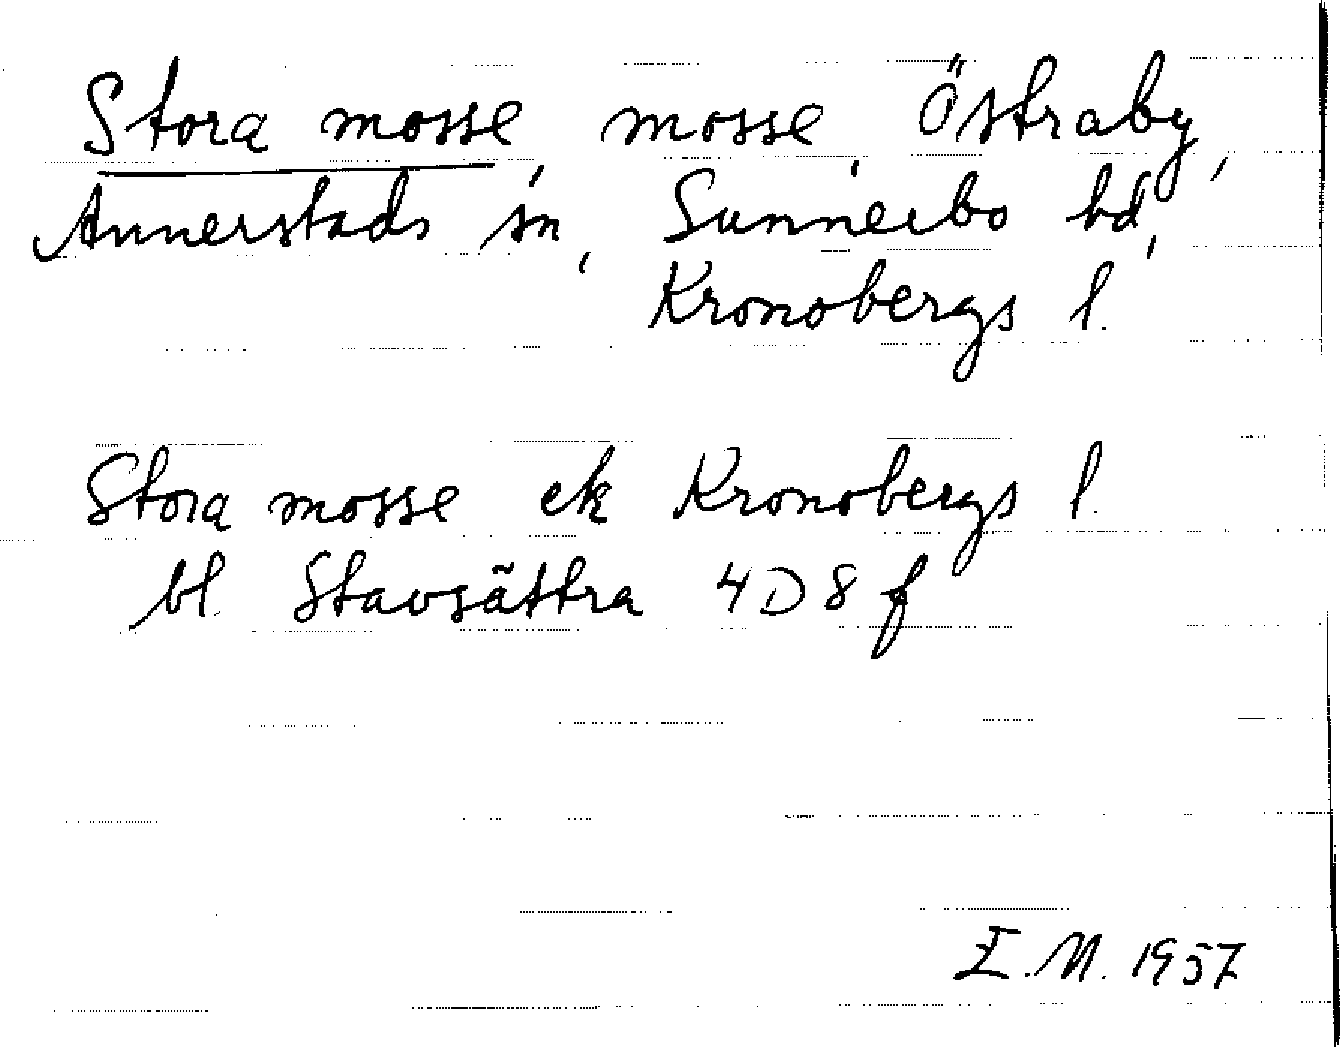 Stora mosse, mosse, Östraby,
Annerstads sn, Sunnerbo hd,
Kronobergs l.
Stora mosse ek Kronobergs l.
bl. Stavsättra 4D8f
E.M. 1957